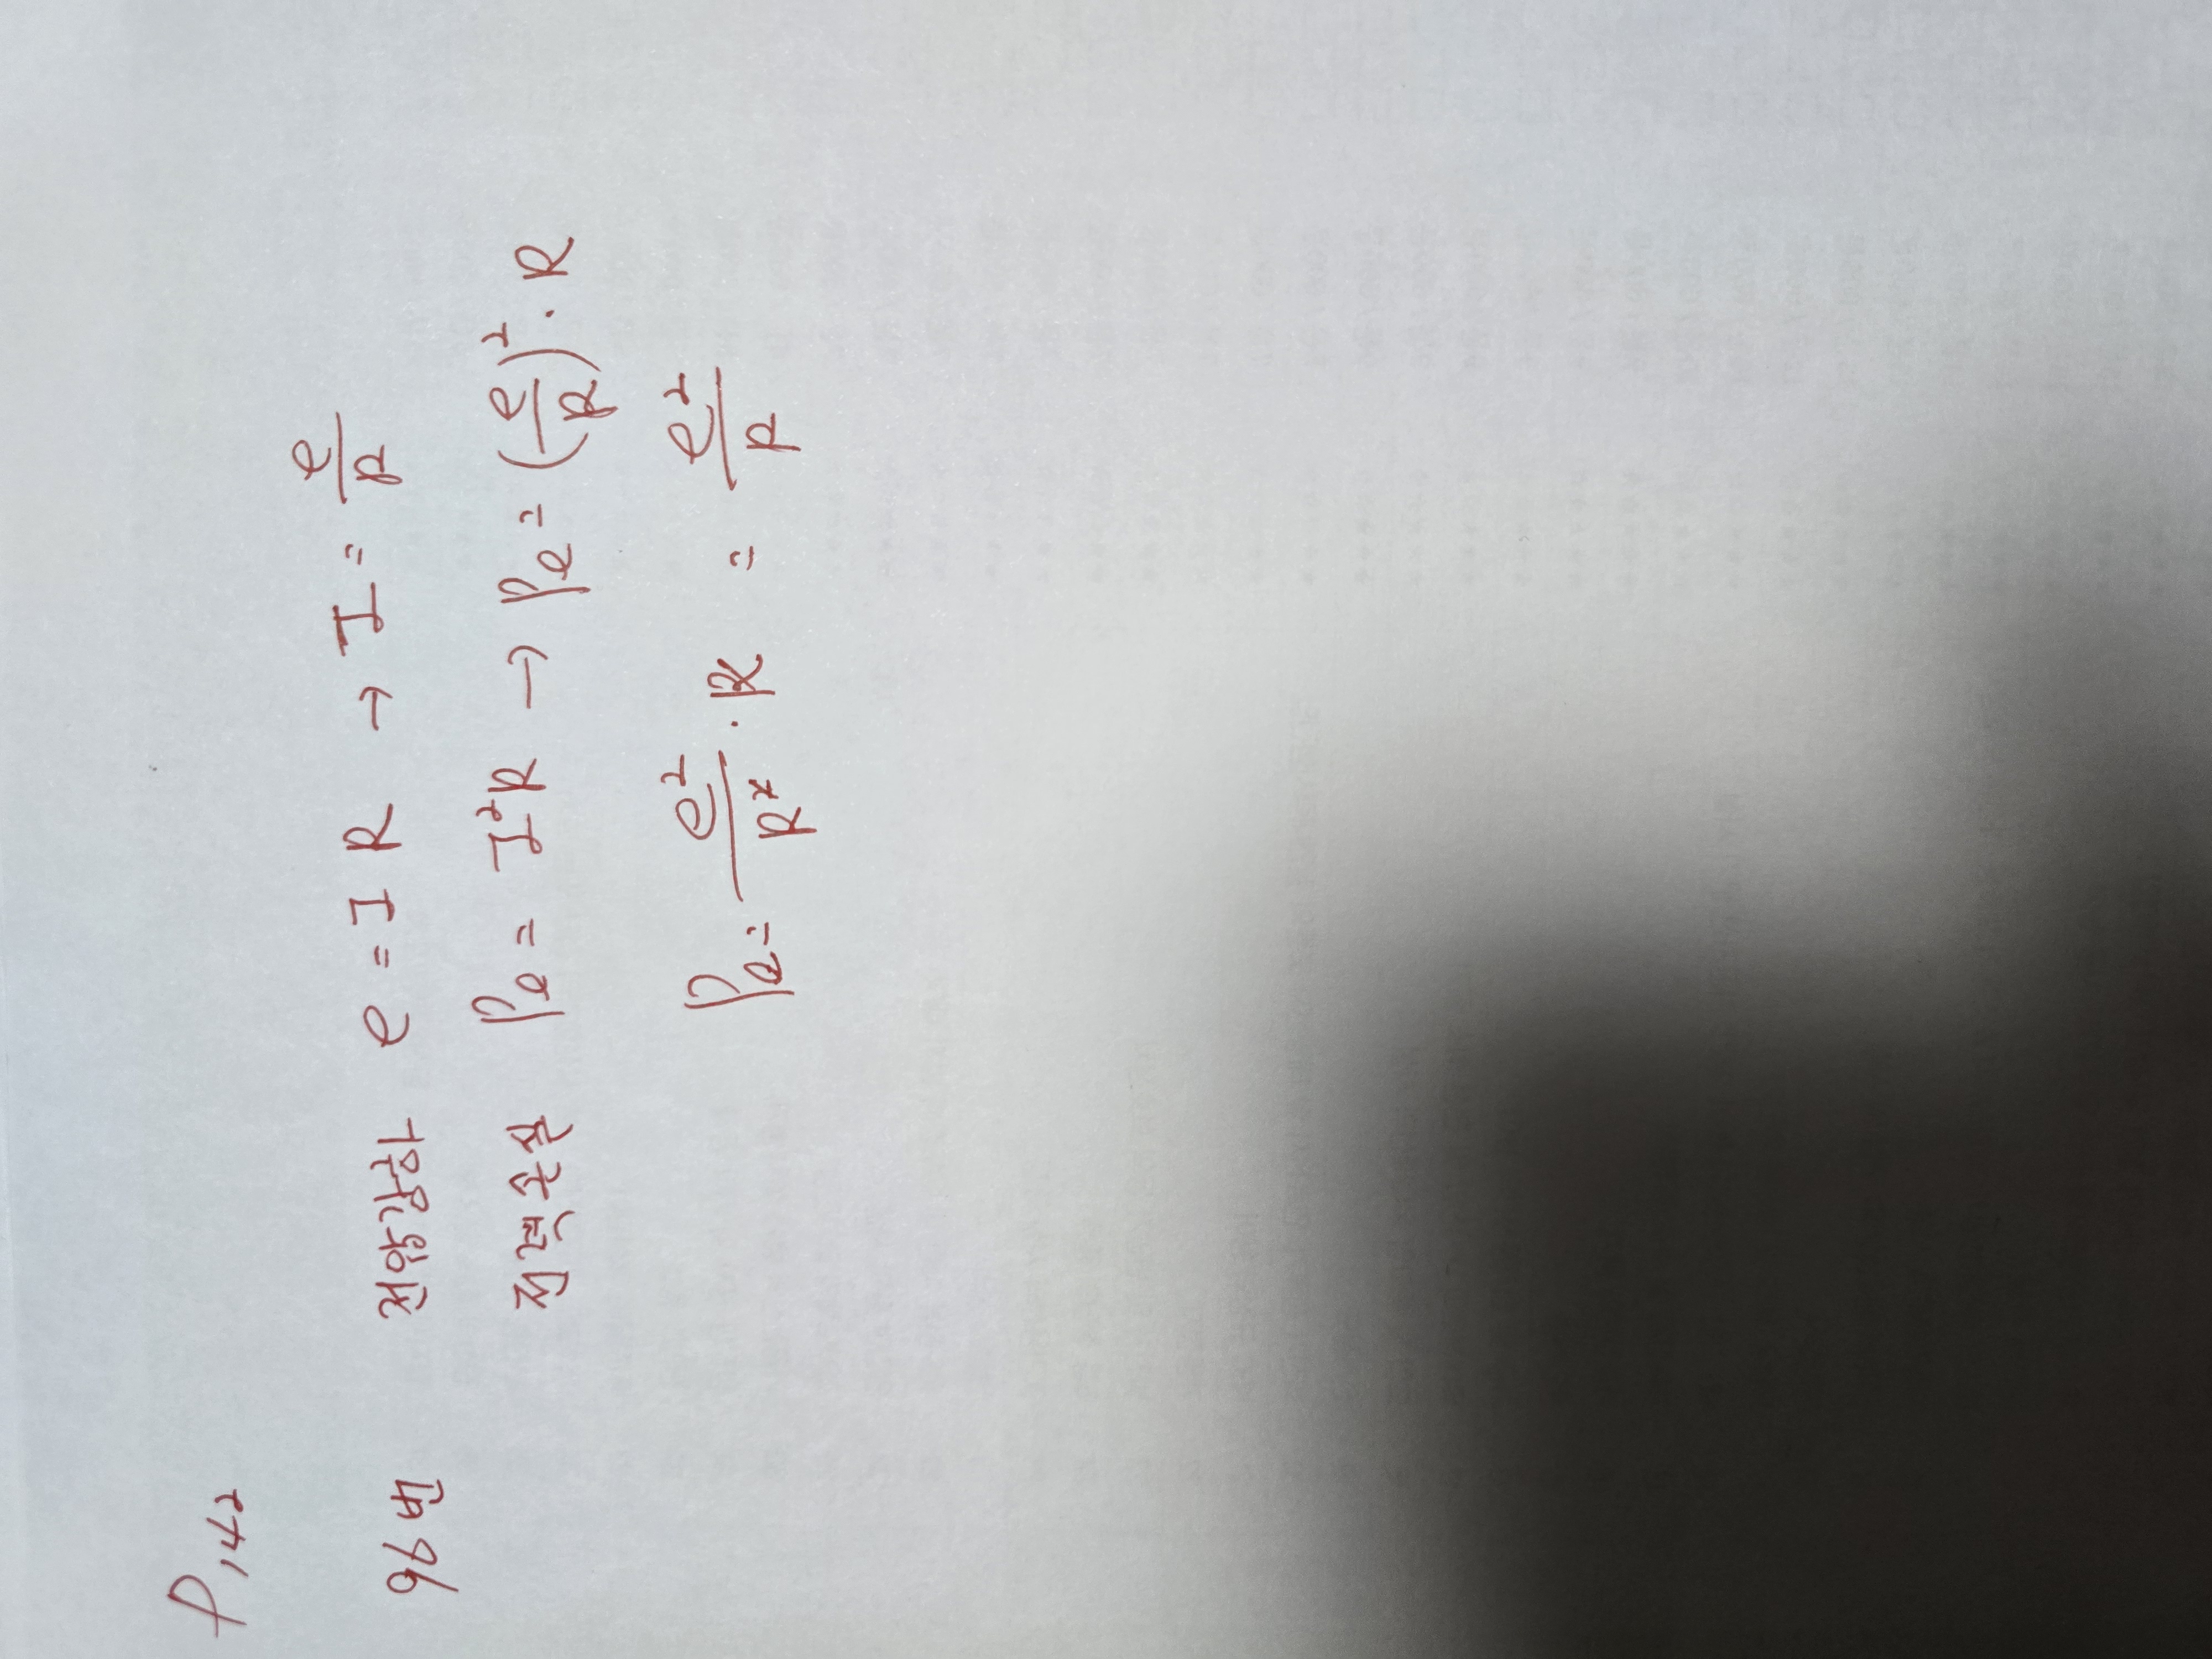 P.142
96번 전압강하 e = I R → I = e/R
전력손실 Pℓ = I²R → Pℓ = (e/R)² · R
Pℓ = e²/R² · R = e²/R